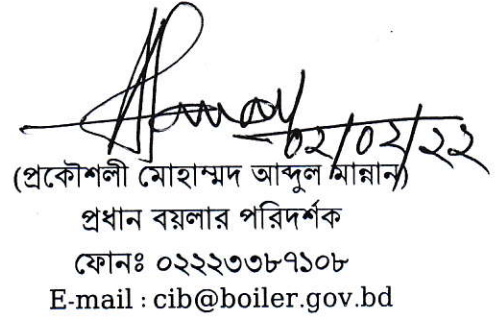 ০২/০২/২২
(প্রকৌশলী মোহাম্মদ আব্দুল মান্নান)
প্রধান বয়লার পরিদর্শক
ফোনঃ ০২২২৩৩৮৭১০৮
E-mail : cib@boiler.gov.bd